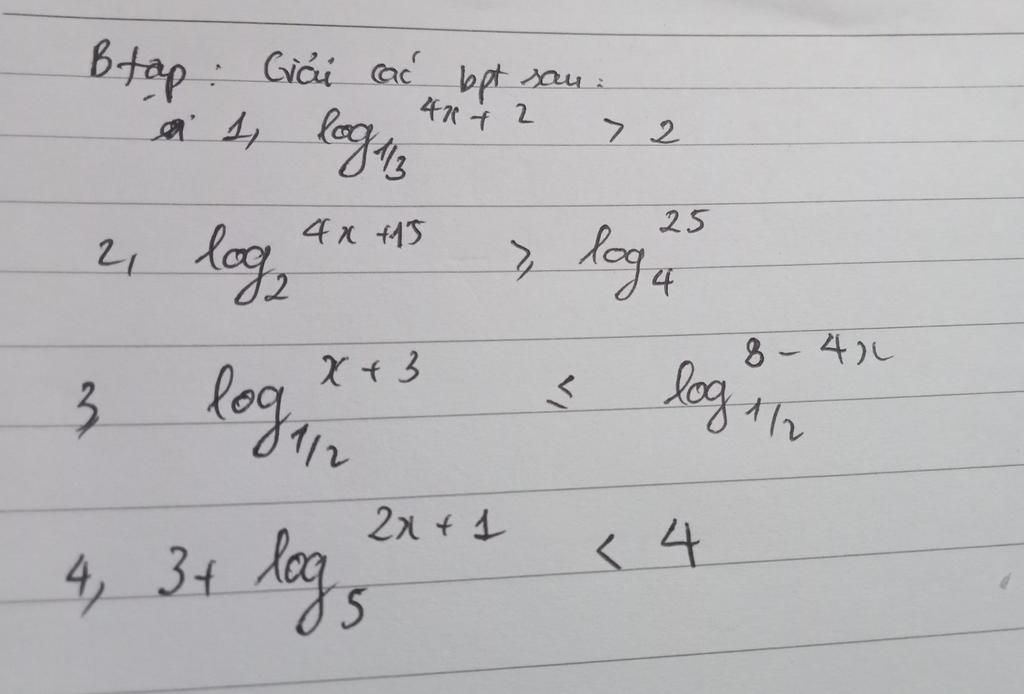 Btập : Giải các bpt sau :
1, log_{1/3}^{4x + 2} > 2
2, log_2^{4x +15} ≥ log_4^{25}
3, log_{1/2}^{x + 3} ≤ log_{1/2}^{8 - 4x}
4, 3 + log_5^{2x + 1} < 4